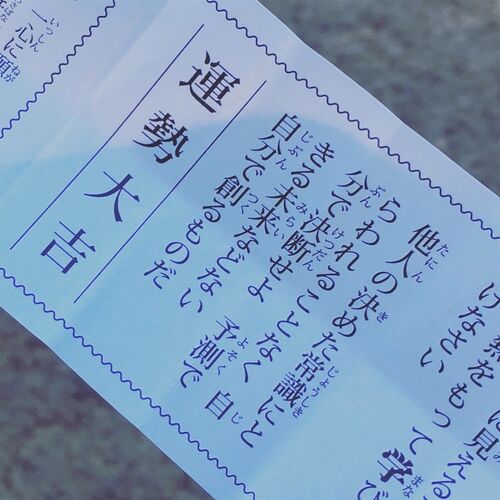 に見える
をもって学
けなさい
他人の決めた常識にと
らわれることなく 自
分で決断せよ 予測で
きる未来などない
自分で創るものだ
運勢大吉
一心に願